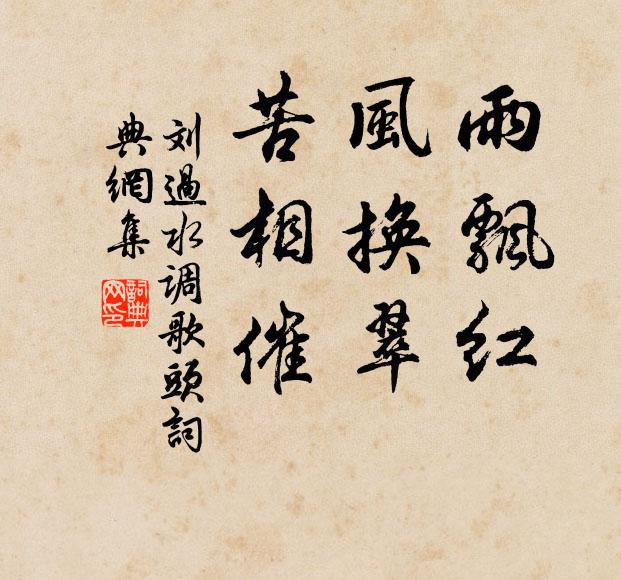 雨飄紅
風換翠
苦相催
刘過水调歌頭詞
典網集
詞典網印